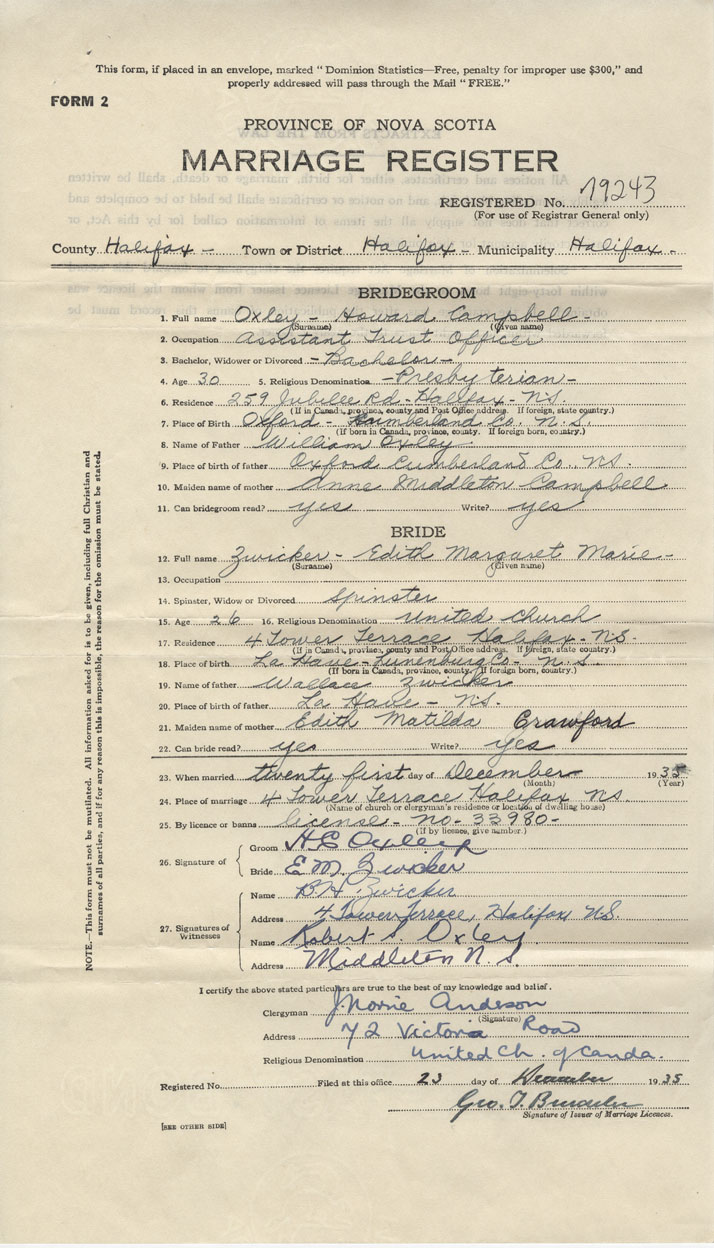 This form, if placed in an envelope, marked "Dominion Statistics—Free, penalty for improper use $300," and
properly addressed will pass through the Mail "FREE."
FORM 2
PROVINCE OF NOVA SCOTIA
MARRIAGE REGISTER
REGISTERED No. 19243
(For use of Registrar General only)
County Halifax - Town or District Halifax - Municipality Halifax -
BRIDEGROOM
1. Full name Oxley - Howard Campbell -
(Surname) (Given name)
2. Occupation Assistant Trust Officer
3. Bachelor, Widower or Divorced - Bachelor -
4. Age 30 5. Religious Denomination - Presbyterian -
6. Residence 259 Jubilee Rd - Halifax - N.S.
(If in Canada, province, county and Post Office address. If foreign, state country.)
7. Place of Birth Oxford - Cumberland Co. N.S.
(If born in Canada, province, county. If foreign born, country.)
8. Name of Father William Oxley
9. Place of birth of father Oxford Cumberland Co. NS.
10. Maiden name of mother Anne Middleton Campbell
11. Can bridegroom read? yes Write? yes
BRIDE
12. Full name Zwicker - Edith Margaret Marie -
(Surname) (Given name)
13. Occupation
14. Spinster, Widow or Divorced Spinster
15. Age 26 16. Religious Denomination United Church
17. Residence 4 Tower Terrace Halifax - NS.
(If in Canada, province, county and Post Office address. If foreign, state country.)
18. Place of birth La Have - Lunenburg Co - N.S.
(If born in Canada, province, county. If foreign born, country.)
19. Name of father Wallace Zwicker
20. Place of birth of father La Have - NS.
21. Maiden name of mother Edith Matilda Crawford
22. Can bride read? yes Write? yes
23. When married twenty first day of December 1935
(Month) (Year)
24. Place of marriage 4 Tower Terrace Halifax NS.
(Name of church or clergyman's residence or location of dwelling house)
25. By licence or banns license - no - 33980 -
(If by licence, give number.)
26. Signature of
Groom H C Oxley
Bride E M Zwicker
27. Signatures of Witnesses
Name B H Zwicker
Address 4 Tower Terrace, Halifax NS.
Name Robert S Oxley
Address Middleton N.S
I certify the above stated particulars are true to the best of my knowledge and belief.
Clergyman J Norrie Anderson
(Signature)
Address 72 Victoria Road
Religious Denomination United Ch. of Canda.
Registered No. Filed at this office 23 day of December 1935
Geo. T.
Signature of Issuer of Marriage Licences.
[SEE OTHER SIDE]
NOTE.—This form must not be mutilated. All information asked for is to be given, including full Christian and
surnames of all parties, and if for any reason this is impossible, the reason for the omission must be stated.